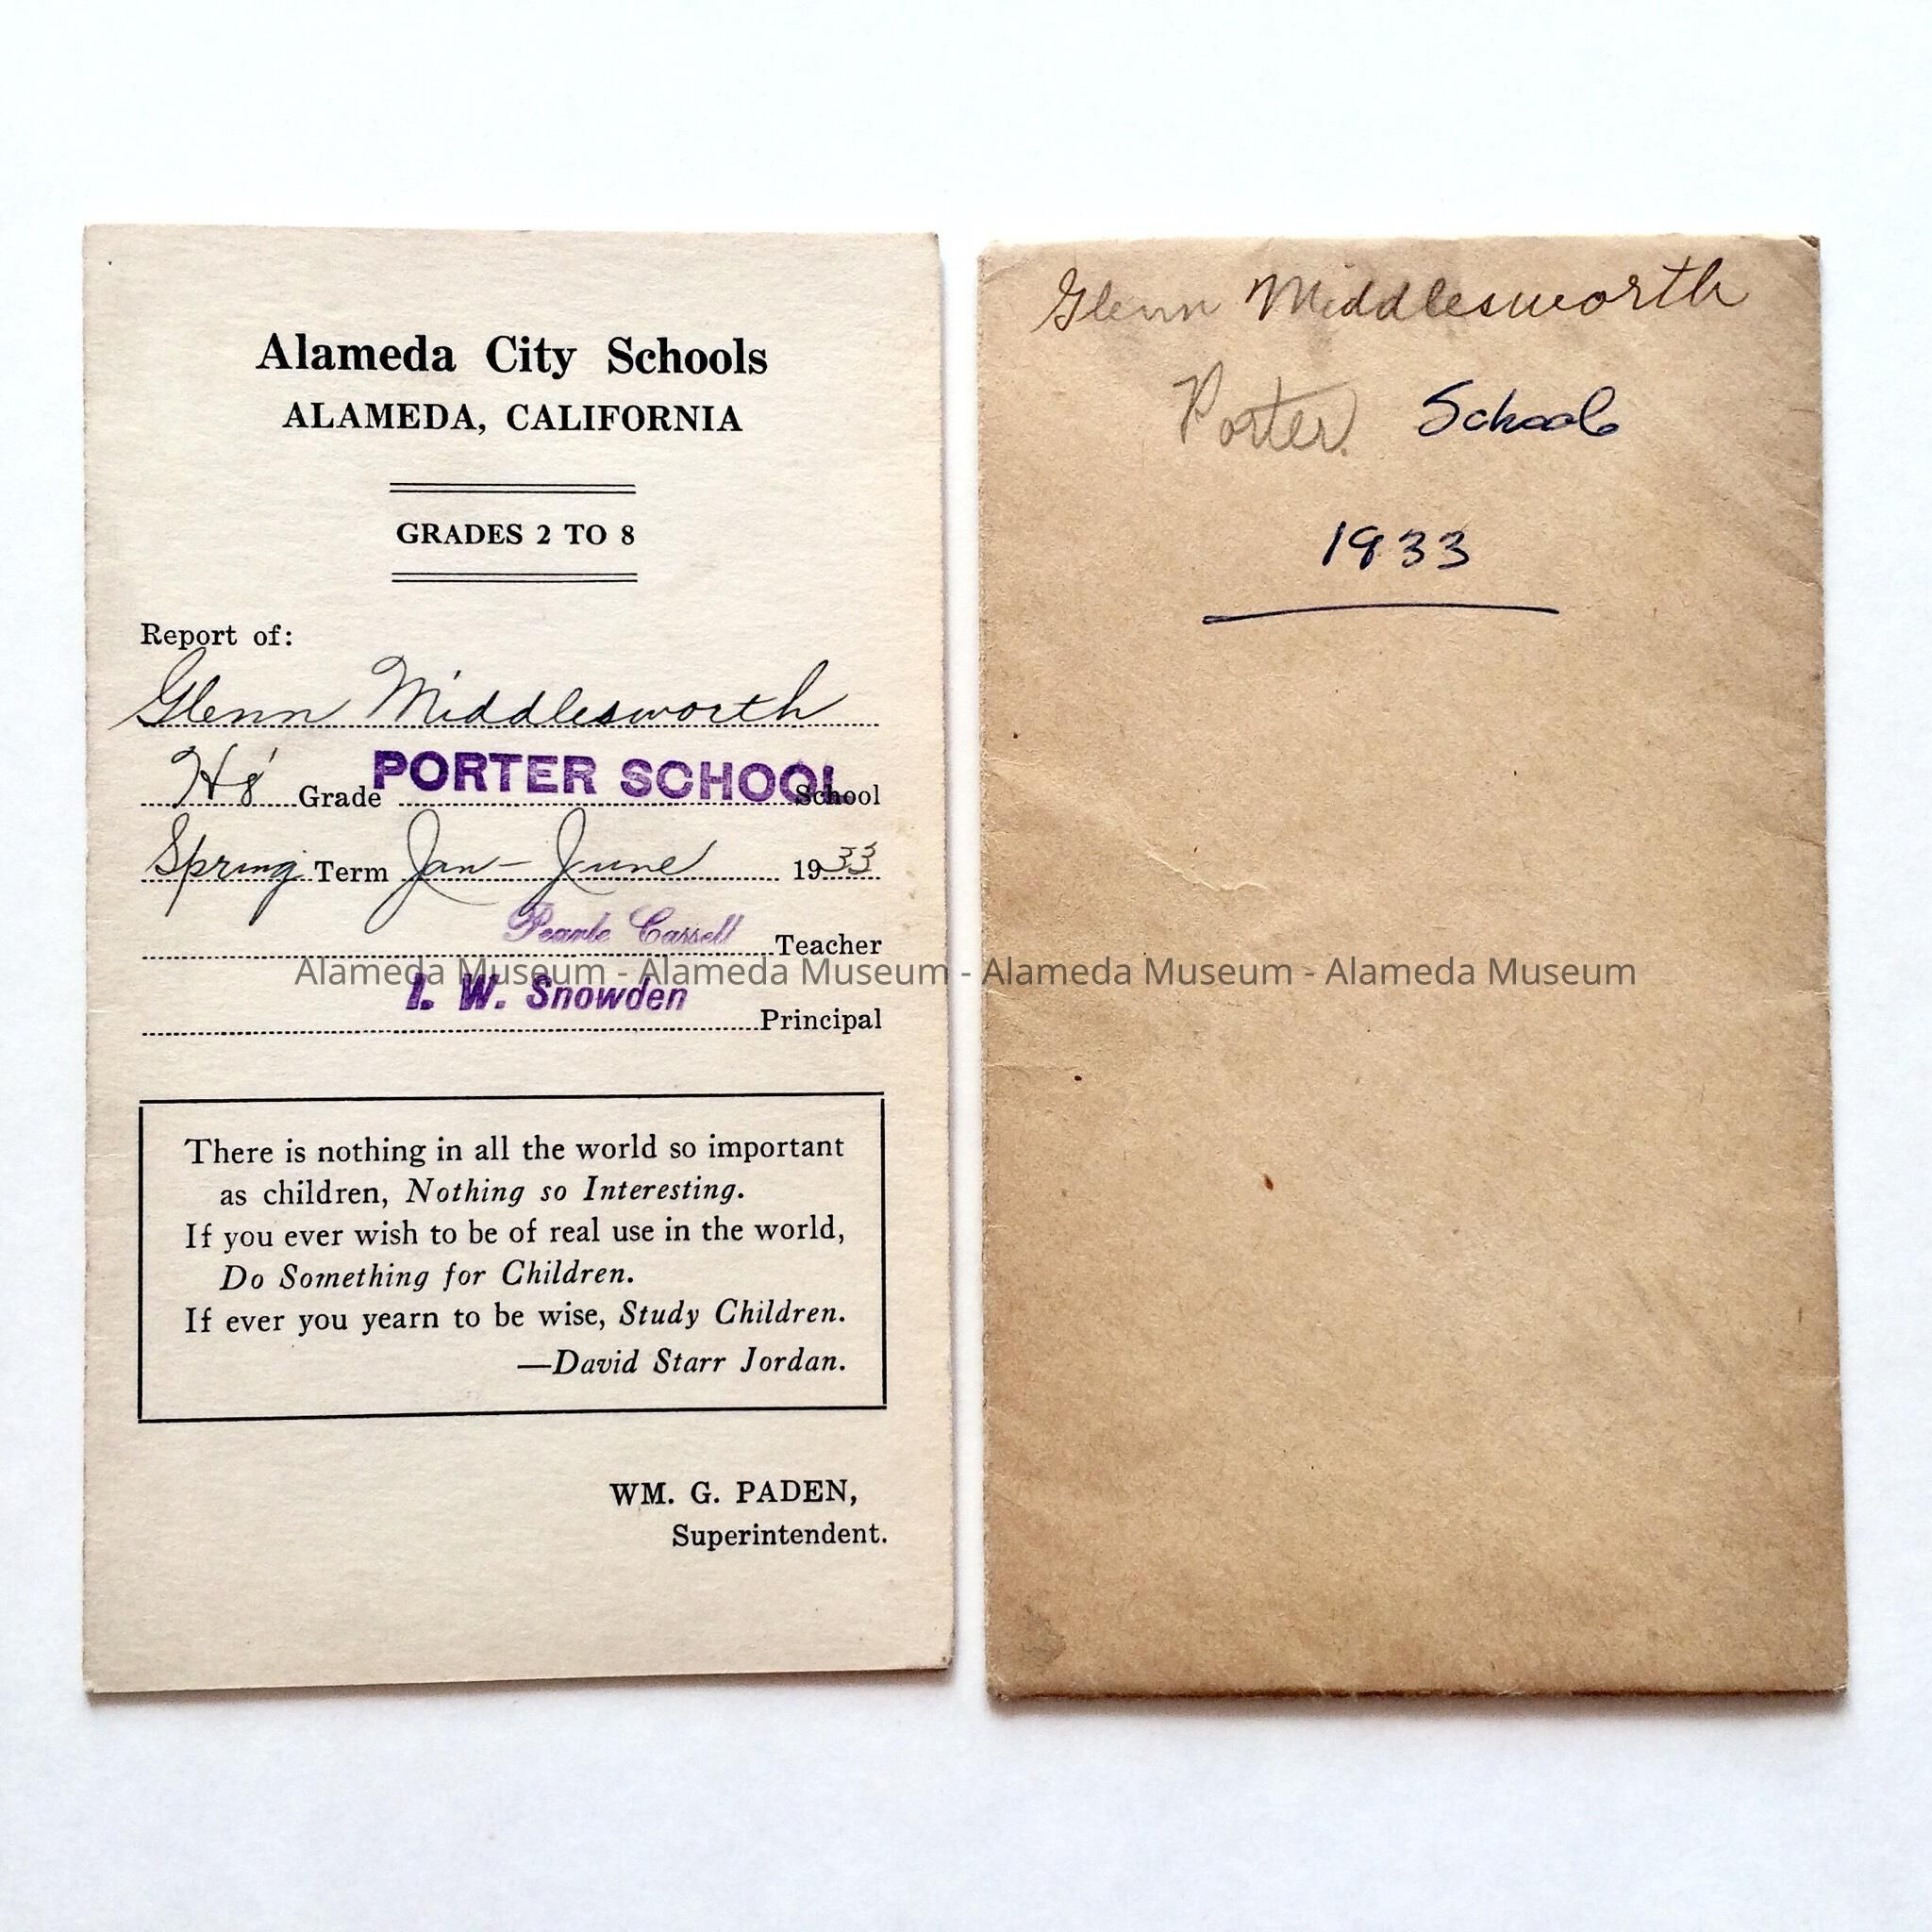 Alameda City Schools
ALAMEDA, CALIFORNIA
GRADES 2 TO 8
Report of:
Glenn Middlesworth
H8 Grade PORTER SCHOOL School
Spring Term Jan - June 1933
Pearle Cassell Teacher
I. W. Snowden Principal
There is nothing in all the world so important
as children, Nothing so Interesting.
If you ever wish to be of real use in the world,
Do Something for Children.
If ever you yearn to be wise, Study Children.
—David Starr Jordan.
WM. G. PADEN,
Superintendent.
Glenn Middlesworth
Porter. School
1933
Alameda Museum - Alameda Museum - Alameda Museum - Alameda Museum